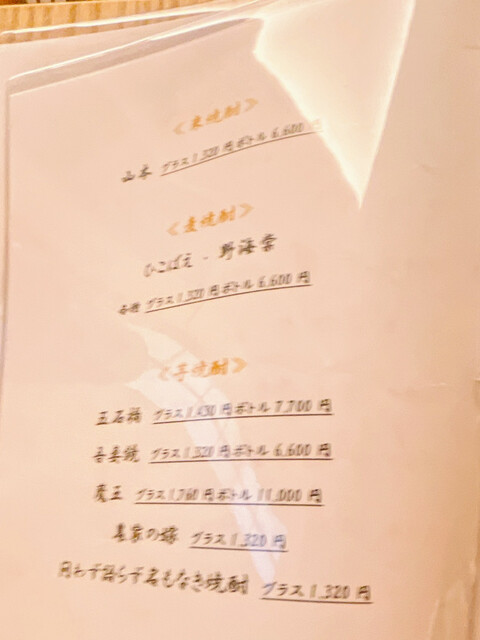 <米焼酎>
山本 グラス1,320円ボトル6,600円
<麦焼酎>
ひこばえ . 野海棠
各種 グラス1,320円ボトル6,600円
<芋焼酎>
五石橋 グラス1,430円ボトル7,700円
吾妻鏡 グラス1,320円ボトル6,600円
魔王 グラス1,760円ボトル11,000円
農家の嫁 グラス1,320円
問わず語らず名もなき焼酎 グラス1,320円